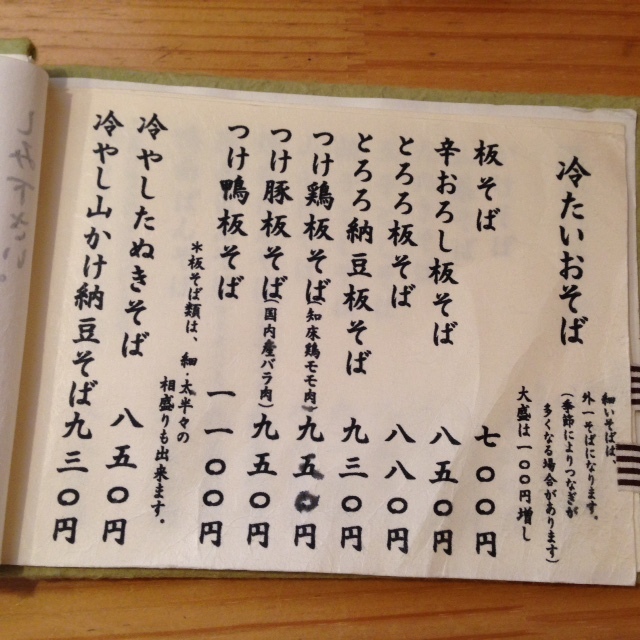 冷たいおそば
細いそばは、
外一そばになります。
(季節によりつなぎが
多くなる場合があります)
大盛は一〇〇円増し
板そば 七〇〇円
辛おろし板そば 八五〇円
とろろ板そば 八八〇円
とろろ納豆板そば 九三〇円
つけ鶏板そば(知床鶏モモ肉) 九五〇円
つけ豚板そば(国内産バラ肉) 九五〇円
つけ鴨板そば 一一〇〇円
*板そば類は、細・太半々の
相盛りも出来ます。
冷やしたぬきそば 八五〇円
冷やし山かけ納豆そば 九三〇円